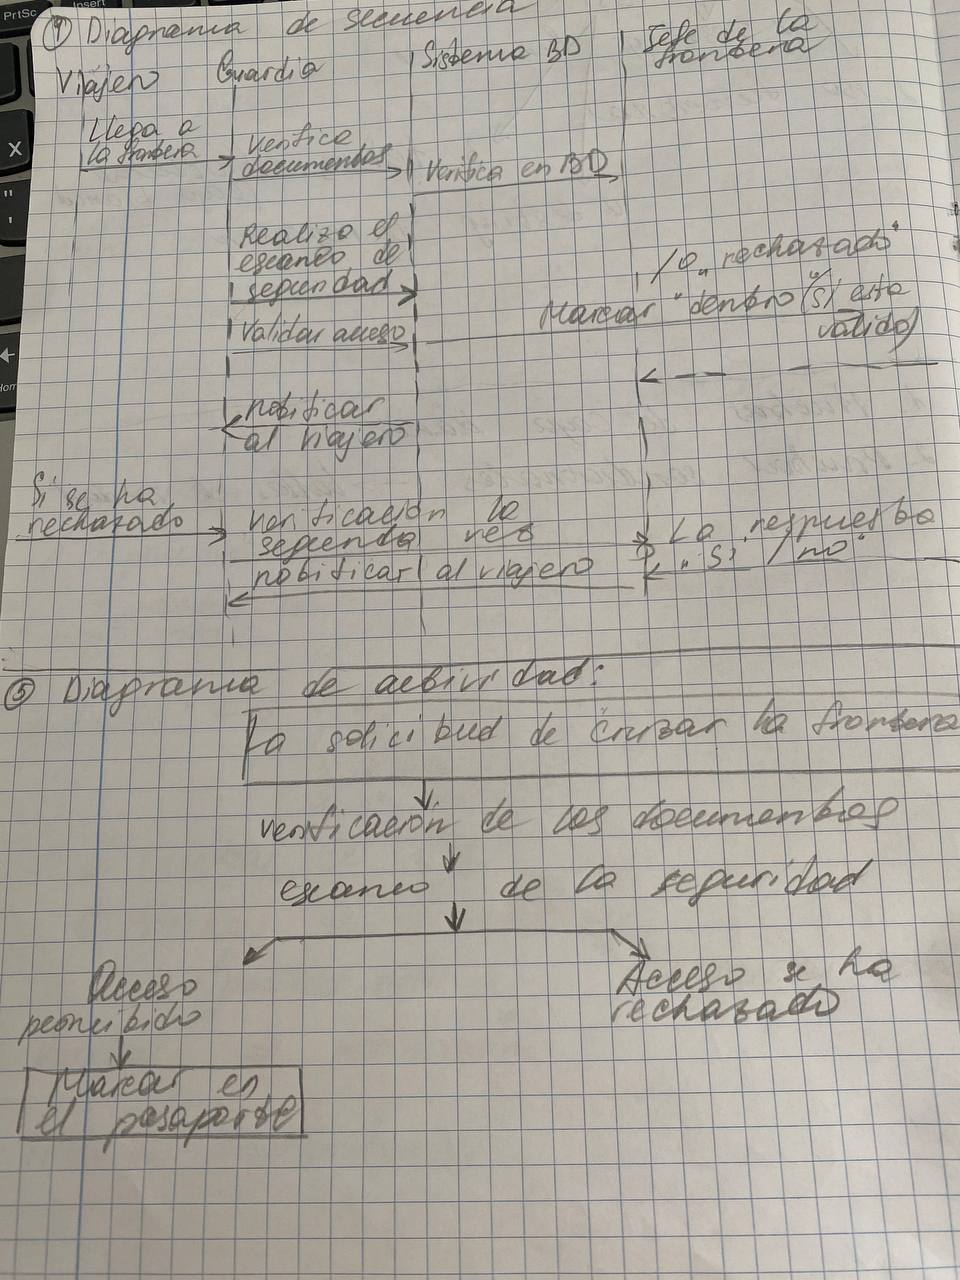 PrtSc
Insert
X
"
'
Hom
④ Diagrama de secuencia
Viajero Guardia Sistema BD Jefe de la frontera
Llega a
la frontera
verifica
documentos
Verifica en BD
Realizo el
escaneo de
seguridad
/o "rechazado"
Marcar "dentro" (si está
valido)
Validar acceso
notificar
al viajero
Si se ha
rechazado
verificación la
segunda vez
La respuesta
"Si / no"
notificar al viajero
⑤ Diagrama de actividad:
La solicitud de cruzar la frontera
verificación de los documentos
escaneo de la seguridad
Acceso
permitido
Acceso se ha
rechazado
Marcar en
el pasaporte